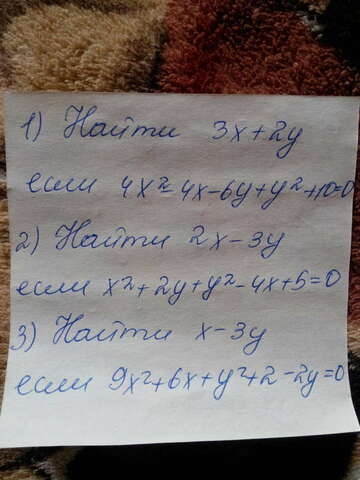 1) Найти 3x+2y
если 4x²-4x-6y+y²+10=0
2) Найти 2x-3y
если x²+2y+y²-4x+5=0
3) Найти x-3y
если 9x²+6x+y²+2-2y=0